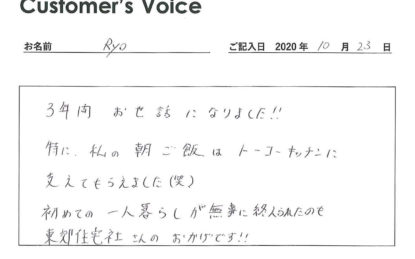 Customer's Voice
お名前 Ryo ご記入日 2020 年 10 月 23 日
3年間 お世話 になりました!!
特に、私の 朝ご飯は トーコーキッチンに
支えてもらえました(笑)
初めての 一人暮らしが無事に終えられたのも
東郊住宅社 さんの おかげです!!